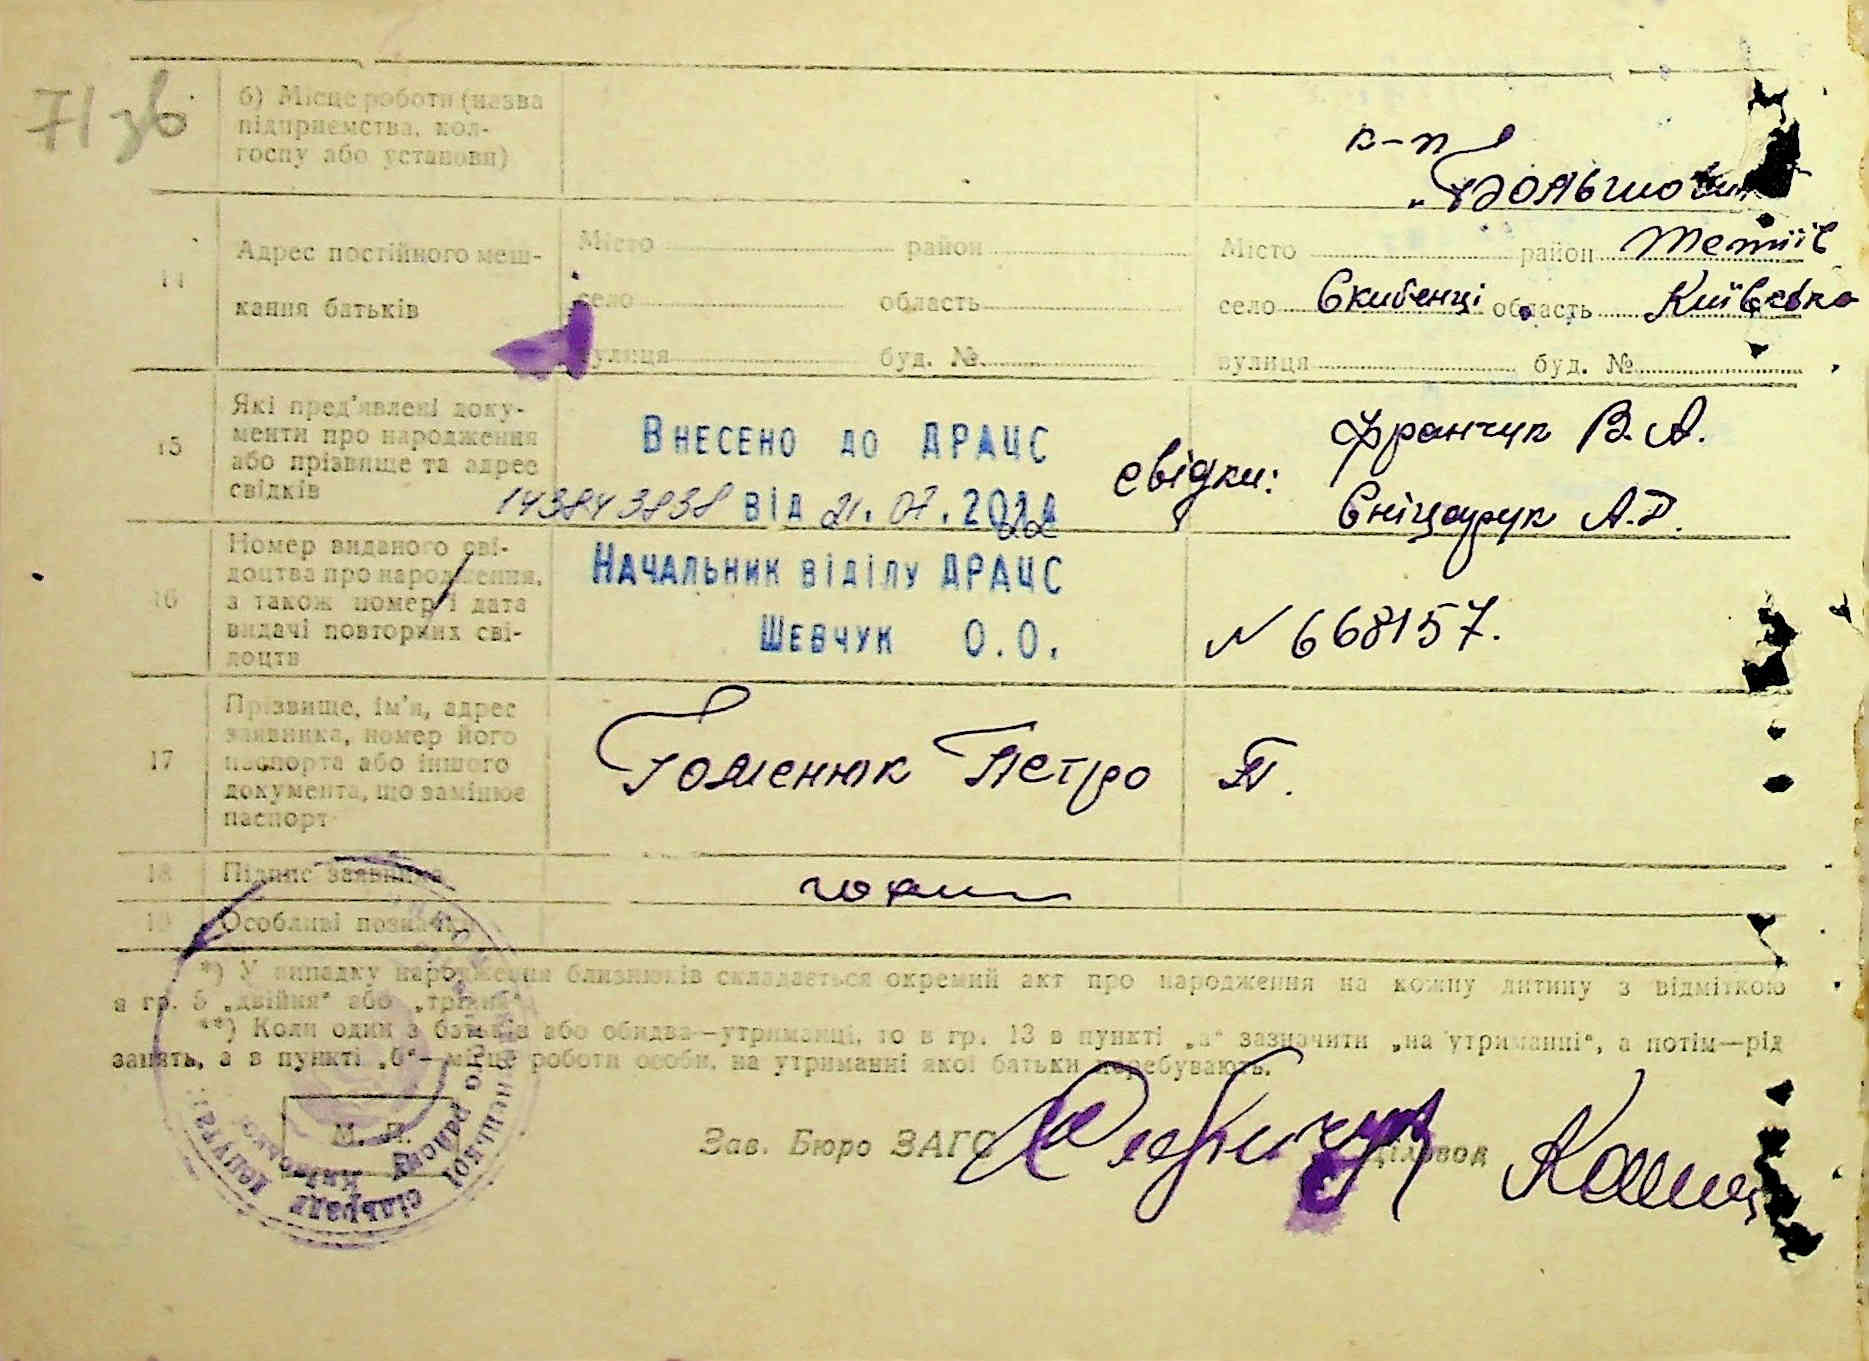 71 зв
б) Місце роботи (назва
підприємства, кол-
госпу або установи)
к-п
„Большовик
14
Адрес постійного меш-
кання батьків
Місто район
село область
вулиця буд. №
Місто район Тетіїв
село Скибенці область Київська
вулиця буд. №
15
Які пред'явлені доку-
менти про народження
або прізвище та адрес
свідків
Внесено до ДРАЦС
143843838 від 21.07.2022
свідки: Франчук В. А.
Сніцарук А.Д.
16
Номер виданого сві-
доцтва про народження,
а також номер і дата
видачі повторних сві-
доцтв
Начальник відділу ДРАЦС
Шевчук О.О.
№ 668157.
17
Прізвище, ім'я, адрес
заявника, номер його
паспорта або іншого
документа, що замінює
паспорт
Гоменюк Петро П.
18
Підпис заявника
19
Особливі позначки
*) У випадку народження близнюків складається окремий акт про народження на кожну дитину з відміткою
в гр. 5 „двійня“ або „трійня“.
**) Коли один з батьків або обидва—утриманці, то в гр. 13 в пункті „а“ зазначити „на утриманні“, а потім—рід
занять, а в пункті „б“—місце роботи особи, на утриманні якої батьки перебувають.
М. П.
Зав. Бюро ЗАГС
Діловод